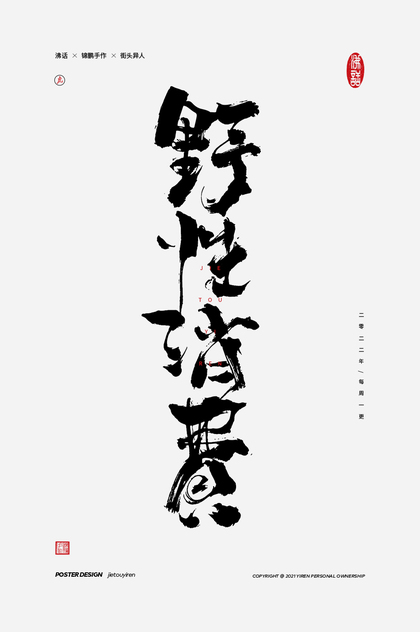 沸话 × 锦鹏手作 × 街头异人
佛話
野性消費
JIE
TOU
二零二二年／每周一更
POSTER DESIGN jietouyiren
COPYRIGHT © 2021 YIREN PERSONAL OWNERSHIP